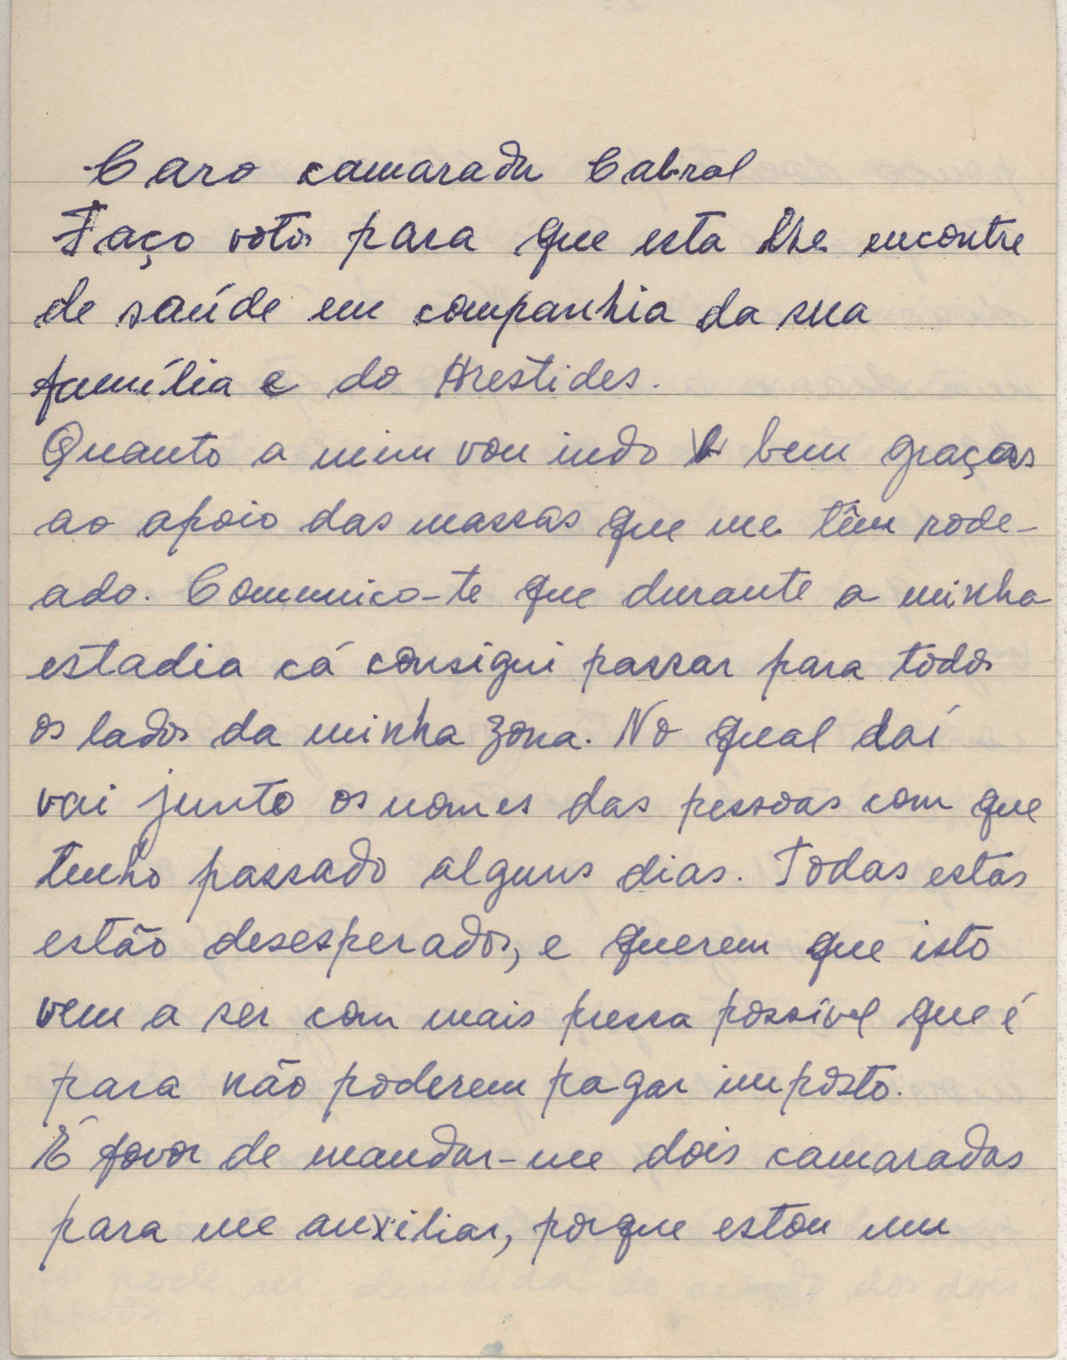 Caro camarada Cabral
Faço votos para que esta lhe encontre
de saúde em companhia da sua
família e do Arestides.
Quanto a mim vou indo bem graças
ao apoio das massas que me têm rode-
ado. Comunico-te que durante a minha
estadia cá consigui passar para todos
os lados da minha zona. No qual daí
vai junto os nomes das pessoas com que
tenho passado alguns dias. Todas estas
estão desesperados, e querem que isto
vem a ser com mais pressa possível que é
para não poderem pagar imposto.
É favor de mandar-me dois camaradas
para me auxiliar, porque estou um